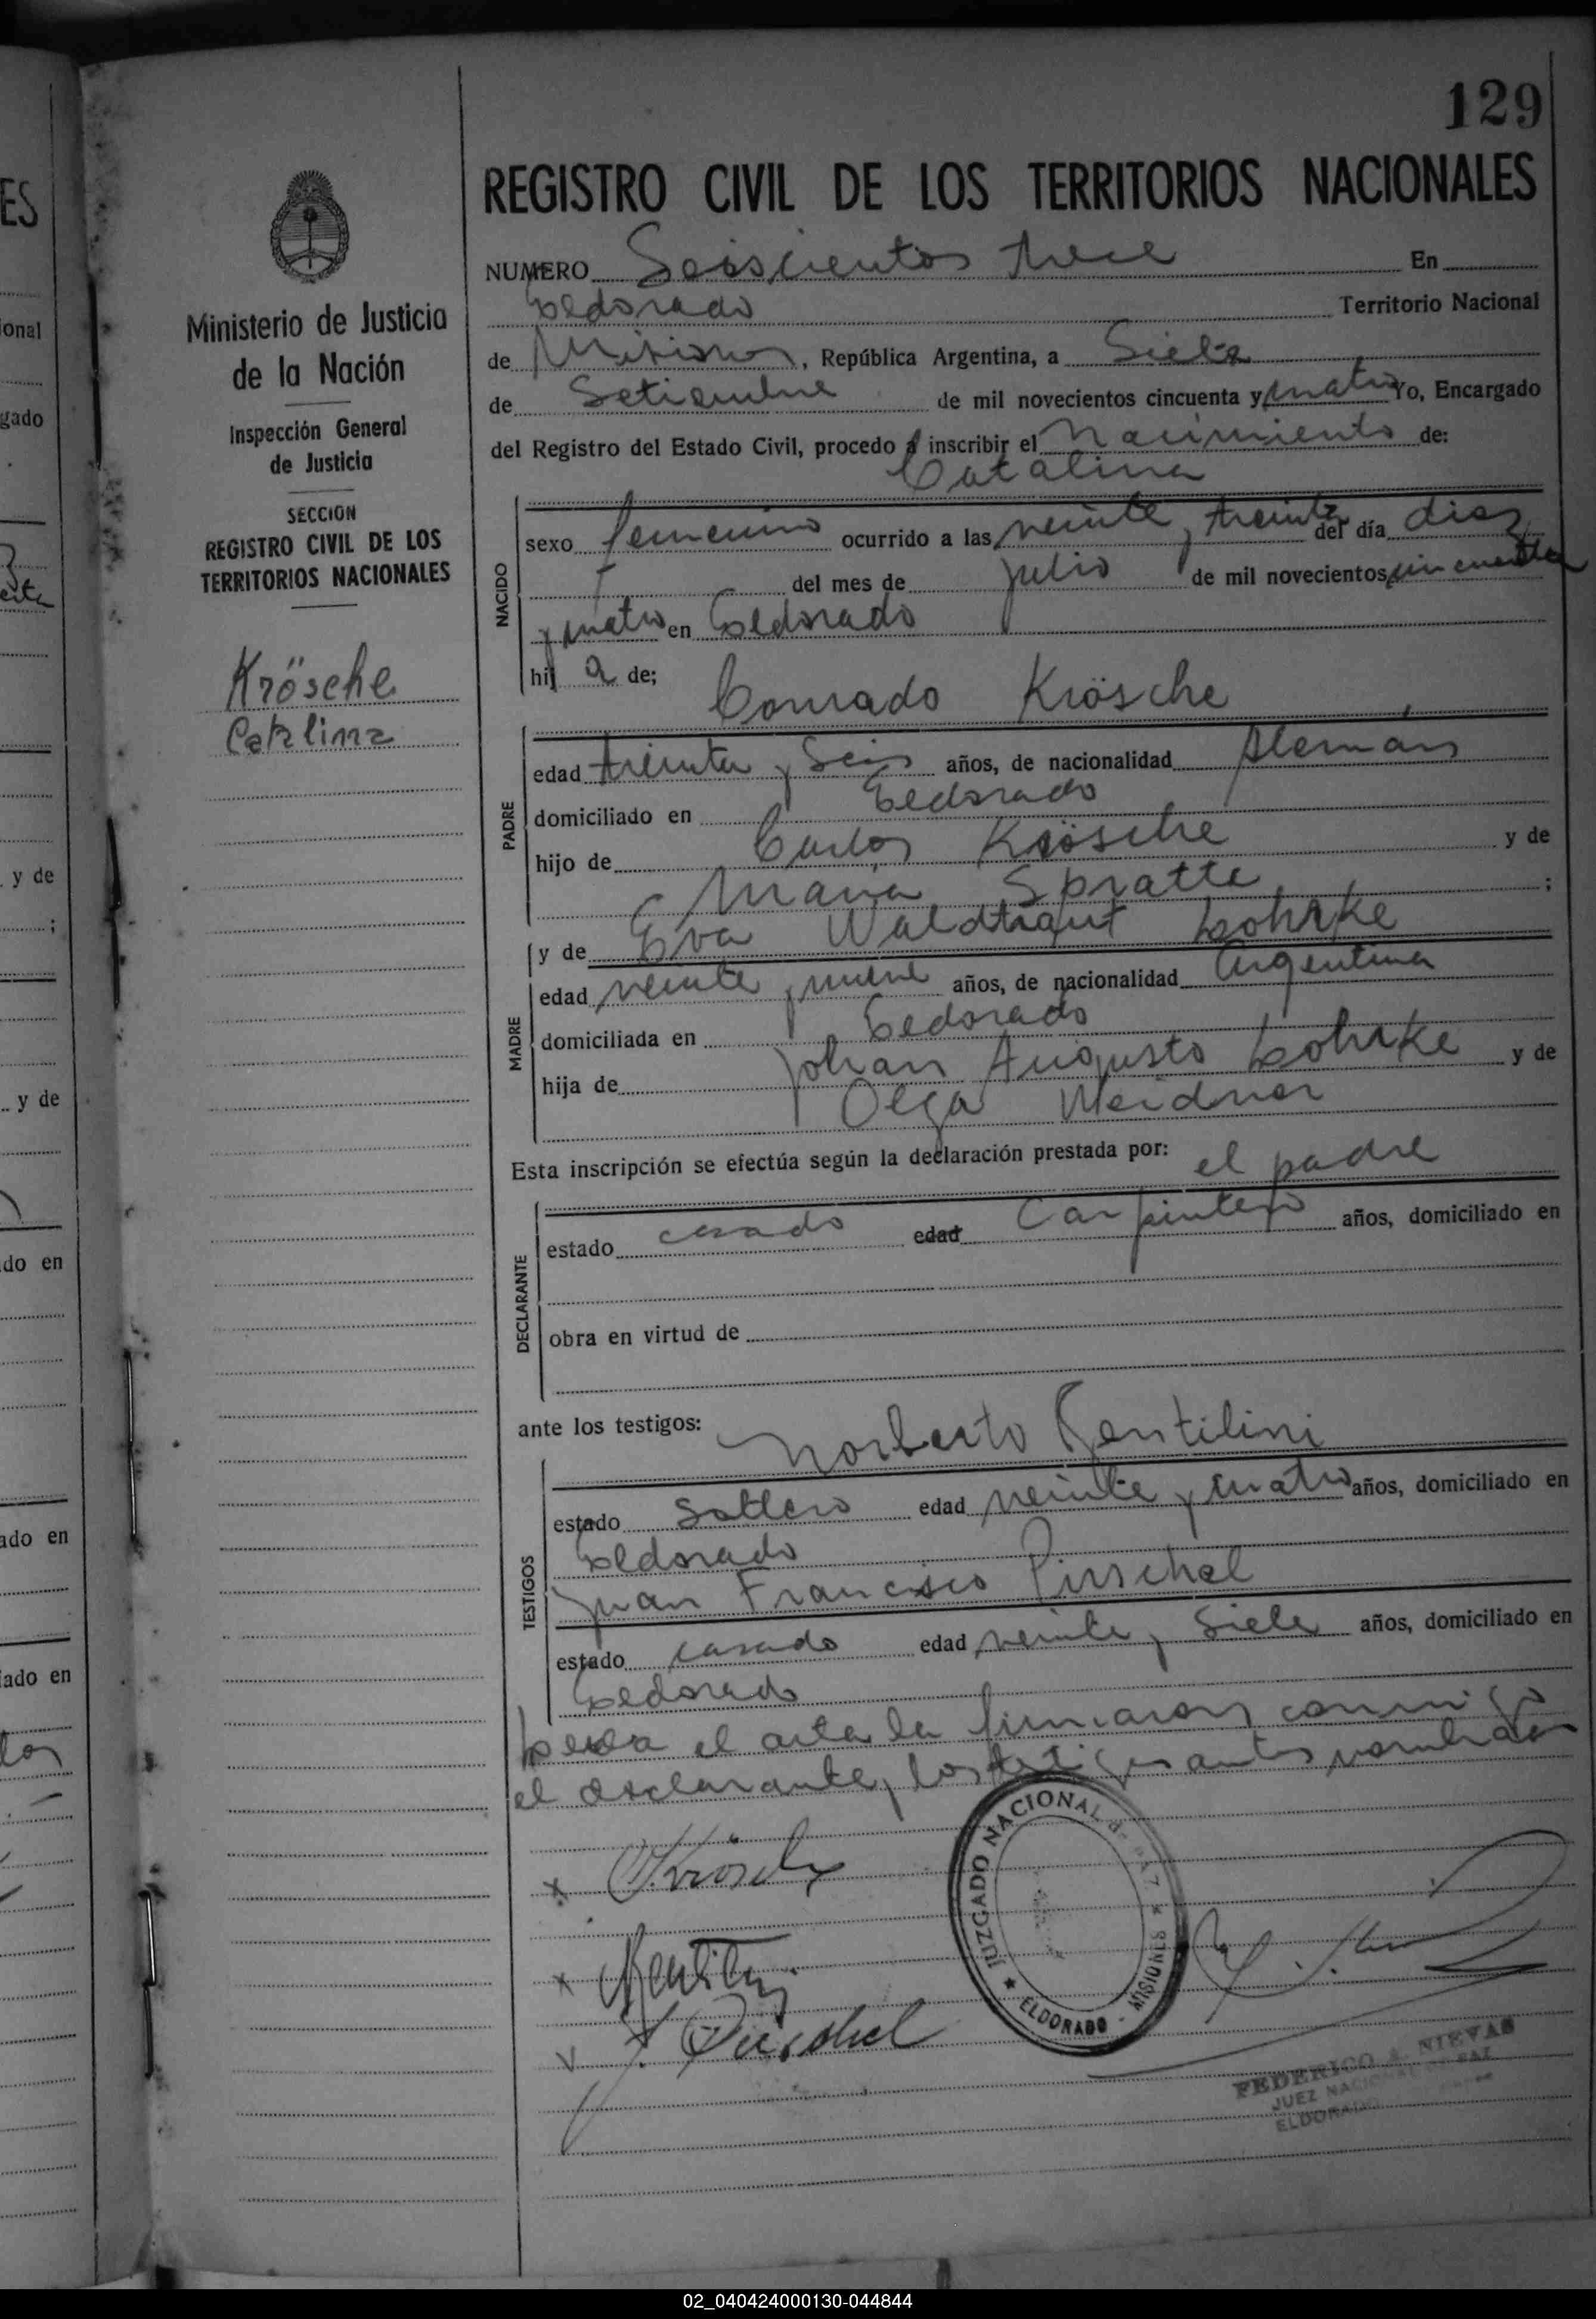 129
REGISTRO CIVIL DE LOS TERRITORIOS NACIONALES
Ministerio de Justicia
de la Nación
Inspección General
de Justicia
SECCION
REGISTRO CIVIL DE LOS
TERRITORIOS NACIONALES
Krösche
Catalina
NUMERO Seiscientos trece En
Eldorado Territorio Nacional
de Misiones, República Argentina, a Siete
de Setiembre de mil novecientos cincuenta y cuatro Yo, Encargado
del Registro del Estado Civil, procedo a inscribir el nacimiento de:
Catalina
NACIDO
sexo femenino ocurrido a las veinte y treinta del día diez
del mes de julio de mil novecientos cincuenta
y cuatro en Eldorado
hij a de;
Conrado Krösche
PADRE
edad treinta y Seis años, de nacionalidad Alemán
domiciliado en Eldorado
hijo de Carlos Krösche y de
Maria Spratte ;
y de Eva Waldtraut Lohrke
MADRE
edad veinte y nueve años, de nacionalidad Argentina
domiciliada en Eldorado
hija de Johan Augusto Lohrke y de
Olga Weidner
Esta inscripción se efectúa según la declaración prestada por: el padre
DECLARANTE
estado casado edad Carpintero años, domiciliado en
obra en virtud de
ante los testigos: Norberto Gentilini
TESTIGOS
estado Soltero edad veinte y cuatro años, domiciliado en
Eldorado
Juan Francisco Pirschel
estado casado edad veinte y Siete años, domiciliado en
Eldorado
Leida el acta la firmaron conmigo
el declarante y los testigos antes nombrados
x Krösche
x Gentilini
J. Pirschel
JUZGADO NACIONAL de PAZ
★ ELDORADO - MISIONES ★
FEDERICO A. NIEVAS
JUEZ NACIONAL DE PAZ
ELDORADO
y de
;
y de
do en
ado en
ado en
ES
ional
gado
02_040424000130-044844